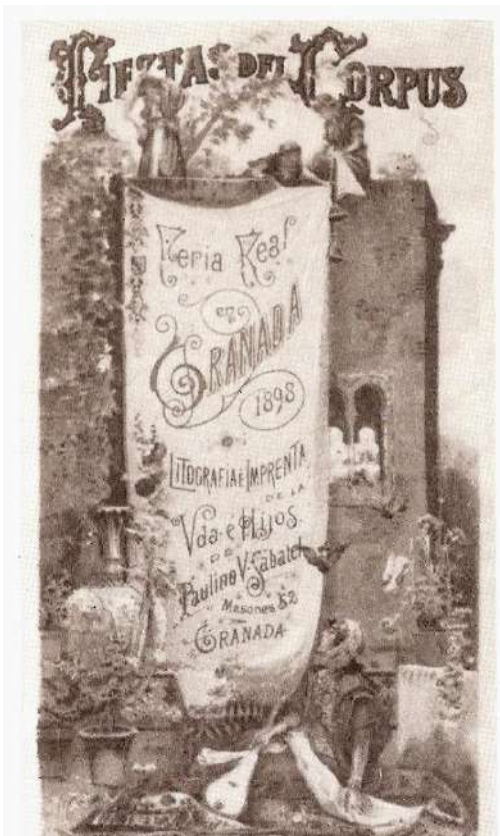 FIESTAS DEL CORPUS
Feria Real
en
GRANADA
1898
LITOGRAFIA E IMPRENTA
DE LA
Vda. e Hijos
DE
Paulino V. Sabatel
Mesones 52
GRANADA